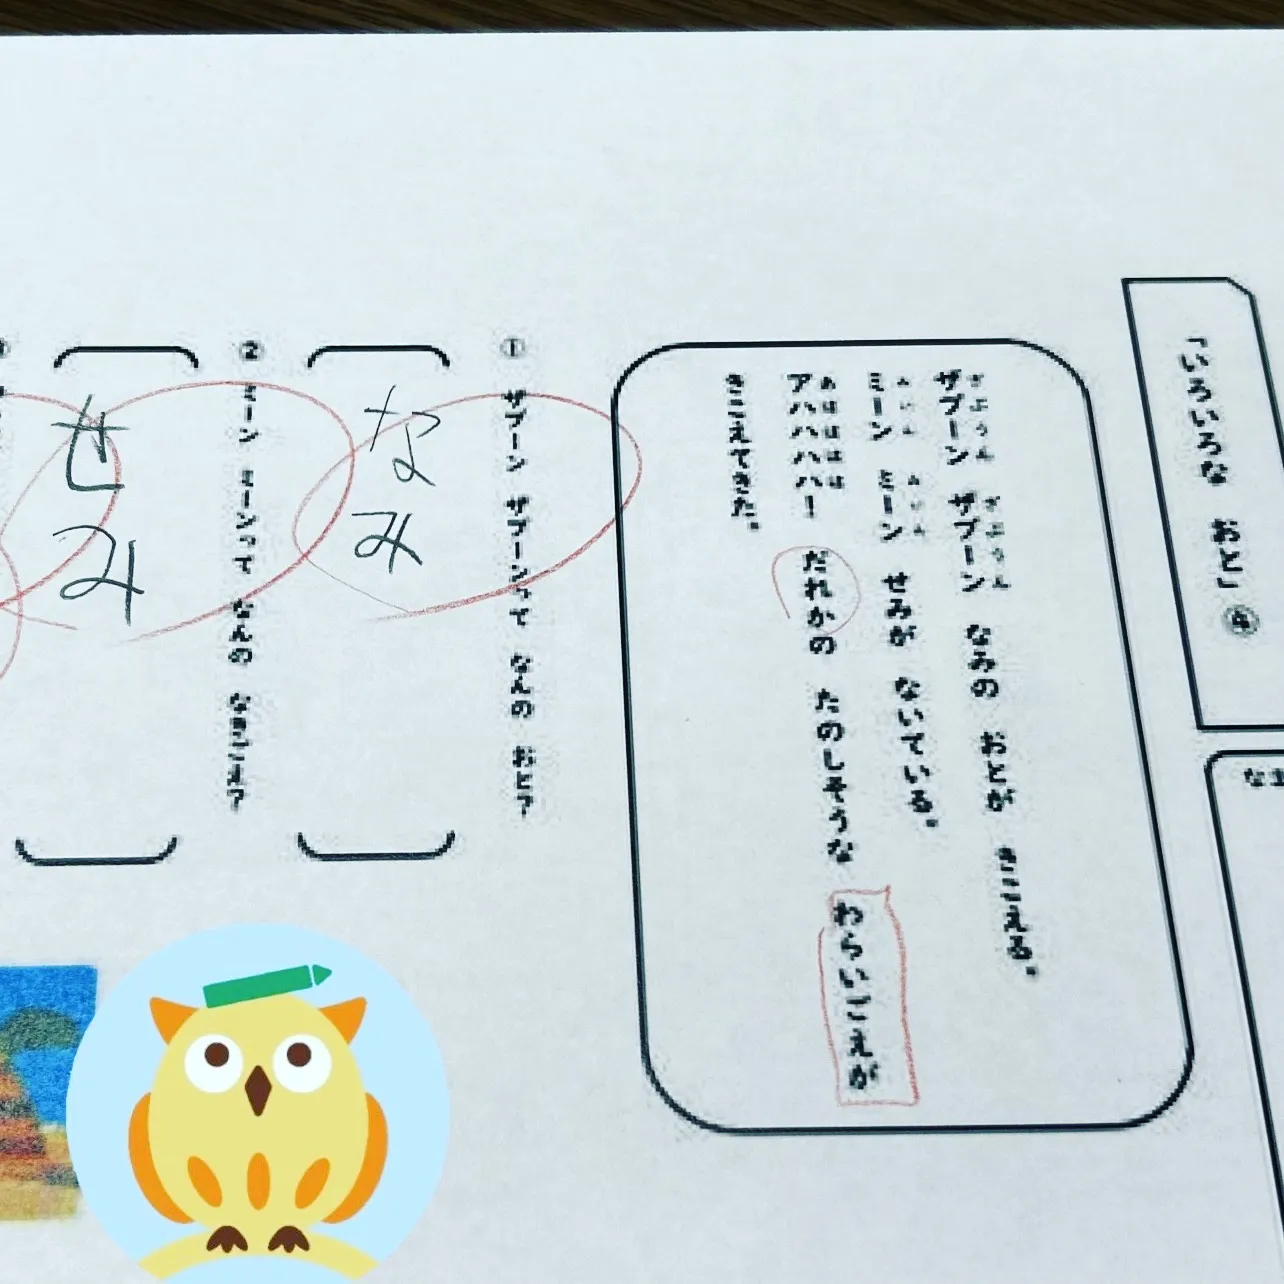 「いろいろな おと」
なま
ザブーン ザブーン なみの おとが きこえる。
ざぶうん ざぶうん
ミーン ミーン せみが ないている。
みいん みいん
アハハハハ！ だれかの たのしそうな わらいごえが
あはははは
きこえてきた。
① ザブーン ザブーンって なんの おと？
なみ
② ミーン ミーンって なんの なきごえ？
せみ